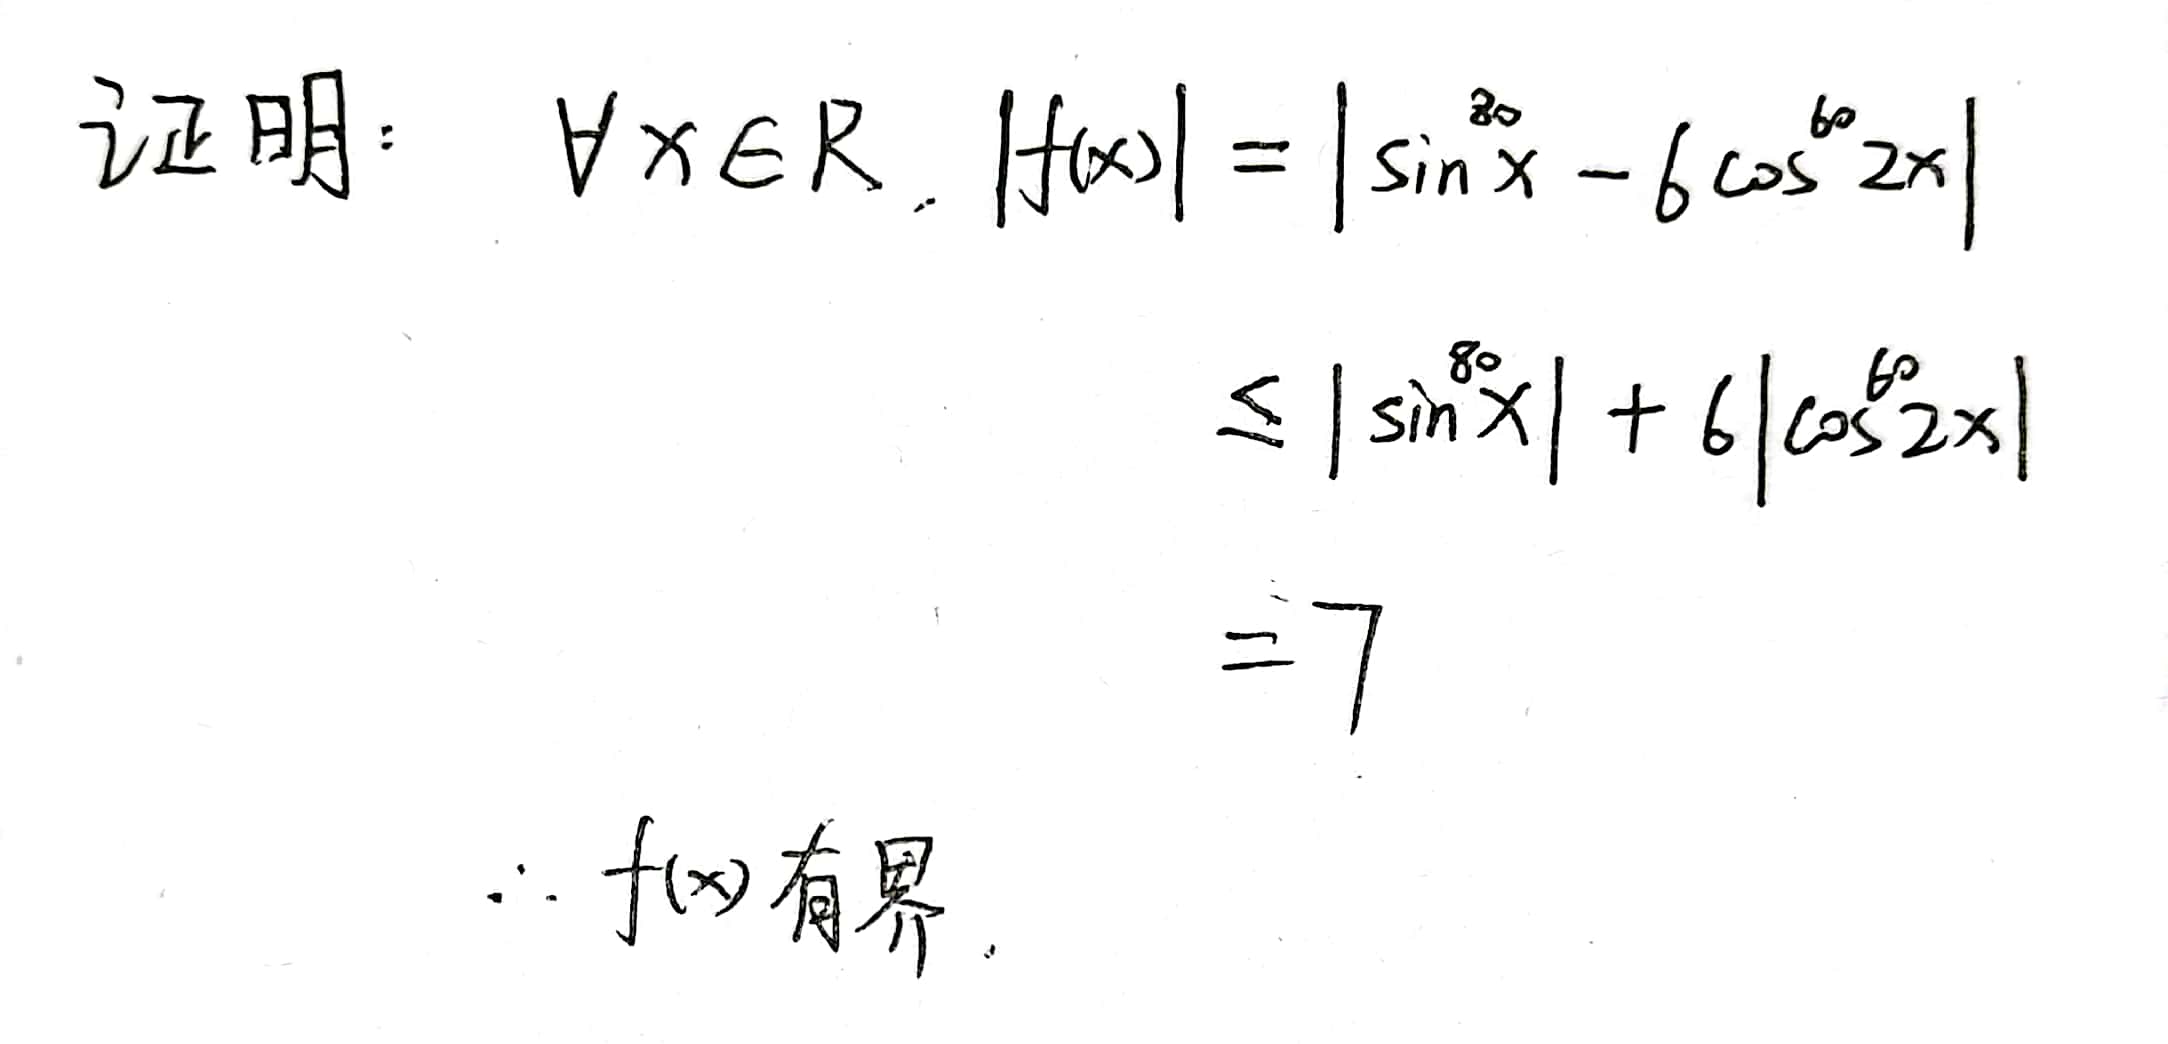 证明: ∀x∈R, |f(x)| = |sin⁸⁰x - 6cos⁶⁰2x|
≤ |sin⁸⁰x| + 6|cos⁶⁰2x|
= 7
∴ f(x)有界.